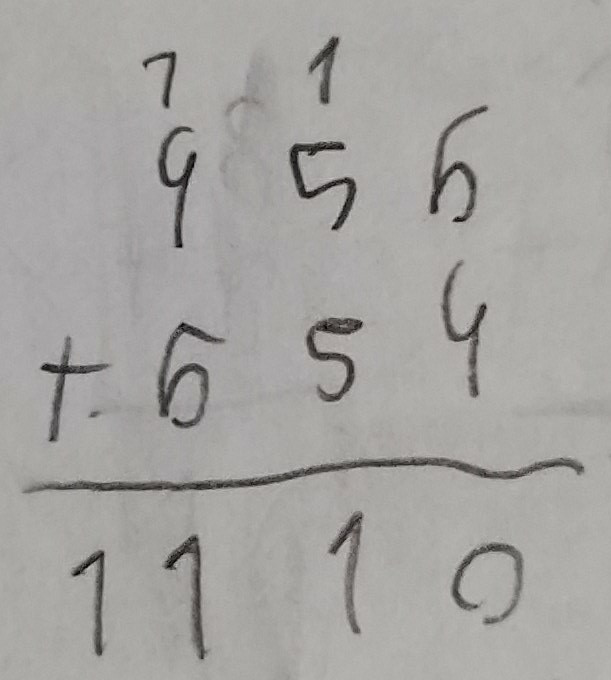 1 1
456
+ 654
1110